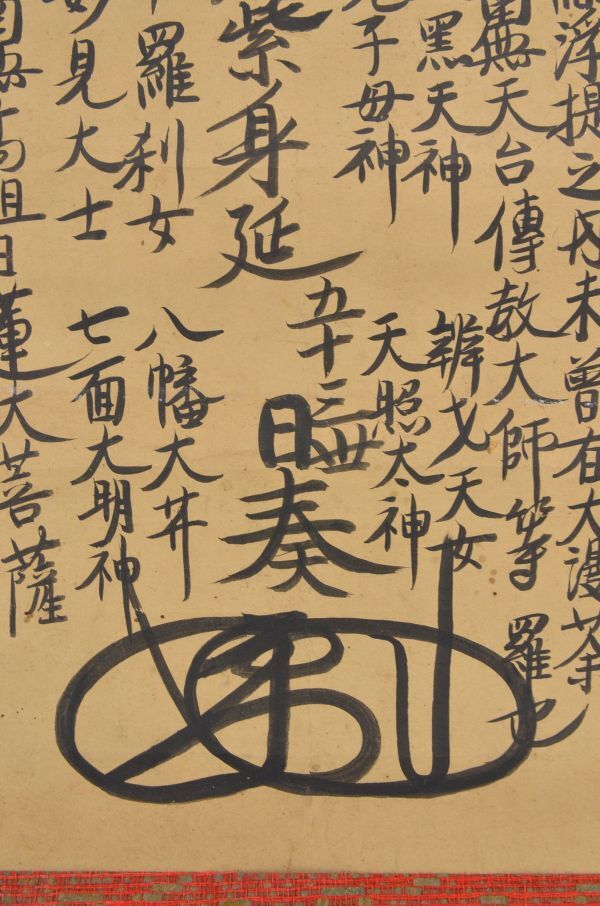 浮提之内未曾有大漫荼
羅也
無天台傳教大師等
黑天神
辨才天女
子母神
天照太神
紫身延
五十三世
日奏
羅刹女
八幡大井
妙見大士
七面大明神
南無高祖日蓮大菩薩